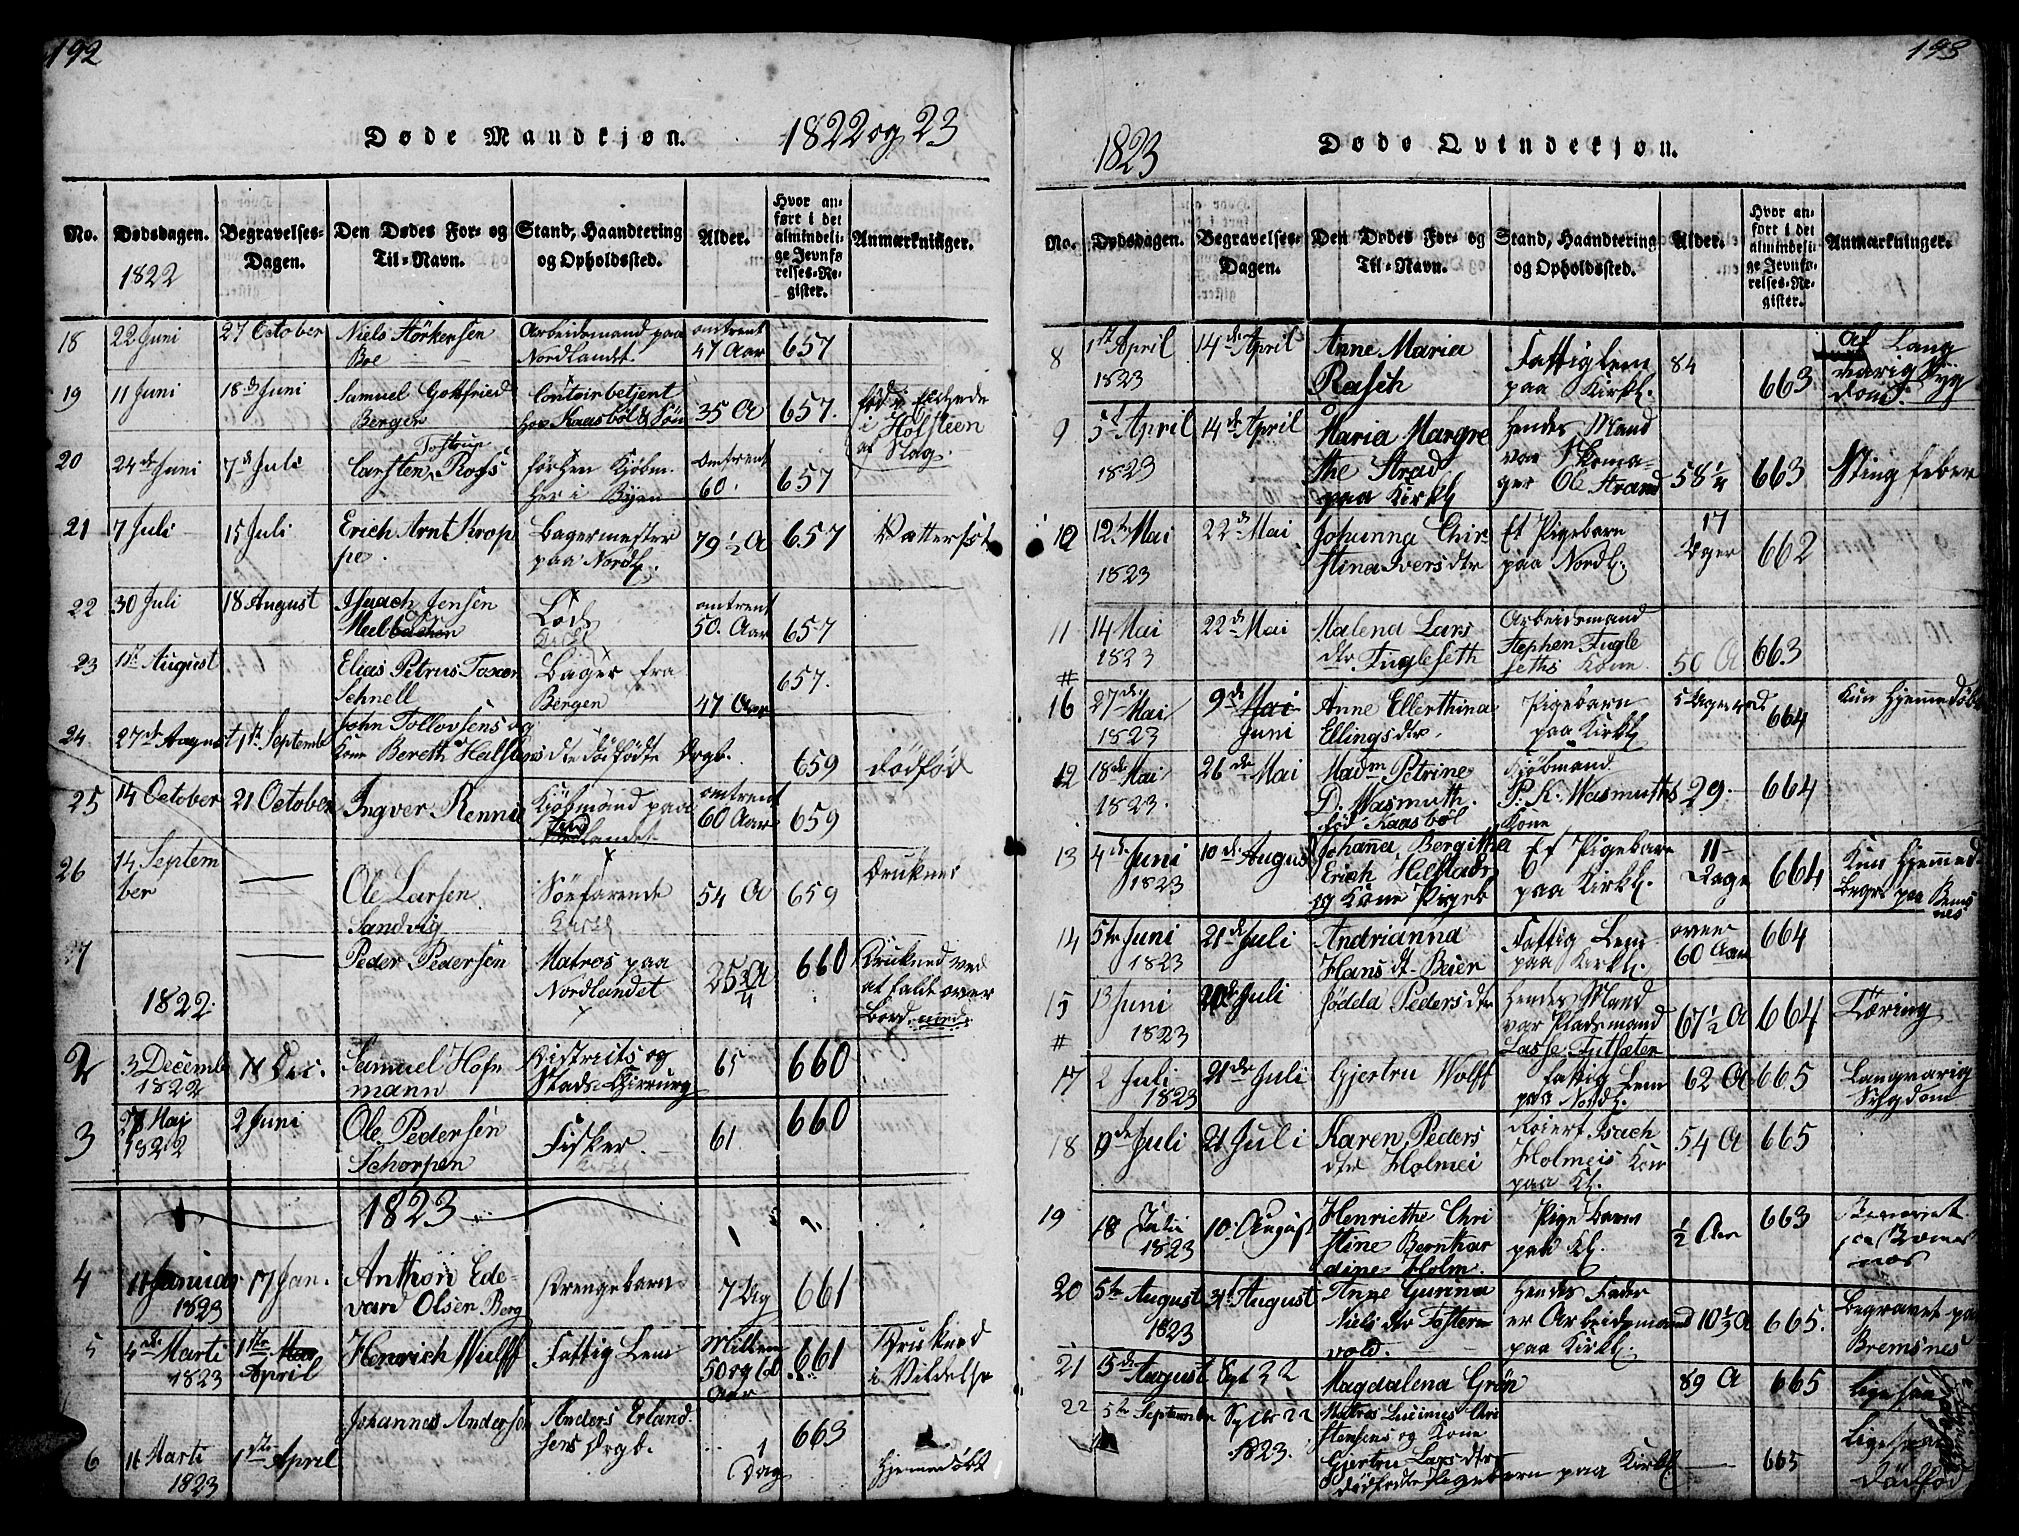 192
Døde Mandkjøn.
1822 og 23
No.
Dødsdagen.
1822
Begravelses-
Dagen.
Den Dødes For- og
Til-Navn.
Stand, Haandtering
og Opholdssted.
Alder.
Hvor an-
ført i det
almindeli-
ge Jevnfø-
relses-Re-
gister.
Anmærkninger.
18
22 Juni
27 October
Niels Störkersen
Boe
Arbeidsmand paa
Nordlandet.
omtrent
47 Aar
657
19
11 Juni
18 d Juni
Samuel Gottfried
Bergen
Contoirbetjent
hos Kaasböl & Sön
35 A
657.
i Holsteen
af Slag.
20
24 de Juni
7 d Juli
Tostrup
Carsten Rofs
förhen Kjöbm.
her i Byen
omtrent
60.
657
21
7 Juli
15 Juli
Erich Arnt Krop
pe.
Bagermester
paa Nordl.
79 ½ A
657
Vattersot
22
30 Juli
18 August
Isaach Jensen
Lods
omtrent
50. Aar
657
23
August
Elias Petrus
Schnell
Bager fra
Bergen
47 Aar
657.
24
27 de August
1 st Septemb
John Tollovsens og
Kone Bereth
dödfödte Drgb.
659
dödföd
25
14 October
21 October
Ingver Rennie
Kjöbmand paa
Nordlandet
omtrent
60 Aar
659
26
14 Septem
ber
Ole Larsen
Sandvig
Söefarende
54 A
659
Druknet
27
1822.
Peder Pedersen
Matros paa
Nordlandet
25 ¾ A
660
Drukned ved
at faldt over
Bord
2
3 Decemb
1822
11 Dec.
Samuel Hofn
mann
Districts og
Stads Chirrurg
65
660
3
Mai
1822
2 Juni
Ole Pedersen
Schorpen
Fisker
61
660
1823
4
11 Januar
1823
17 Jan.
Anthon Ede-
vard Olsen Berg
Drengebarn
7 Dg
661
5
4 de Marti
1823
1 ste
April
Henrich Wulff
Fattig Lem
Mellem
50 og 60
Aar
661
Druknet
i Vildelse
6
11 Marti
1823
1 ste April
Johannes Andersen
Anders Erland
sens Drgb.
1
Dag
663
Hjemedöbt
193
1823
Døde Qvindekjøn.
No.
Dødsdagen.
Begravelses-
Dagen.
Den Dødes For- og
Til-Navn.
Stand, Haandtering
og Opholdssted.
Alder.
Hvor an-
ført i det
almindeli-
ge Jevnfø-
relses-Re-
gister.
Anmærkninger.
8
1 st April
1823
14 de April
Anne Maria
Rasch
Fattiglem
paa Kirkl.
84
663
Af Lang
varig Syg
dom.
9
5 t April
1823
14 de April
Maria Margre
the Strad
paa Kirkl
Hendes Mand
var Skoma-
ger Ole Strand
58 ¼
663
Sting feber
10
12 te Mai
1823
22 de Mai
Johanna Chir-
stina Ivers dtr
Et Pigebarn
paa Nordl.
17
Dger
662
11
14 Mai
1823
22 de Mai
Malena Lars
dtr Fugleseth
Arbeidsmand
Stephen Fugle
seths Kone
50 A
663
#
16
27 de
Mai
1823
9 de Mai
Juni
Anne Ellerthina
Ellings dtr.
Pigebarn
paa Kirkl
664
Kun Hjemedöbt
12
18 de Mai
1823.
26 de Mai
Mad m Petrine
D. Wasmuth.
föd Kaasböl
Kjöbmand
P. K. Wasmuths
Kone
29.
664
13
4 de Juni
1823
10 de August
Johana Bergitha
Erich
og Kone Pigeb
Et Pigebarn
paa Kirkl.
11
Dage
664
Kun Hjemmed.
Begr. paa Brems
nes
14
5 te Juni
1823
21 de Juli
Andrianna
Hans dt. Beier
Fattig Lem
paa Kirkl.
over
60 Aar
664
15
13 Juni
1823
Juli
Jödda Peders dtr
Hendes Mand
var Pladsmand
Lasse
67 ½ A
664
Tæring
#
17
2 Juli
1823
21 de Juli
Gjertru Wolff
Fattig Lem
paa Nordl.
62 A
665
Langvarig
Sygdom
18
9 de Juli
21 Juli
Karen Peders
dtr Holmei
Isach
Holmeis Kone
paa Kl.
54 A
665
19
18 Julii
1823
10. August
Henriethe Chri
stine Bernhar
dine Holm.
Pige barn
paa Kl.
½ Aar
663
20
5 te August
1823
August
Anne Gurina
Niels dtr Fosterv
vold.
Hendes Fader
er Arbeidsmand
paa Kirkl.
10 ½ A
665.
Begravet paa
Bremsnes
21
15 de August
Spt 22
Magdalena Grön
89 A
665
Ligesaa
22
5 te September
Sptbr 22
1823.
stensens og Kone
Gjertru Lars dtr
dödfödte Pigebarn paa Kirkl
665
Ligesaa
Dödföd